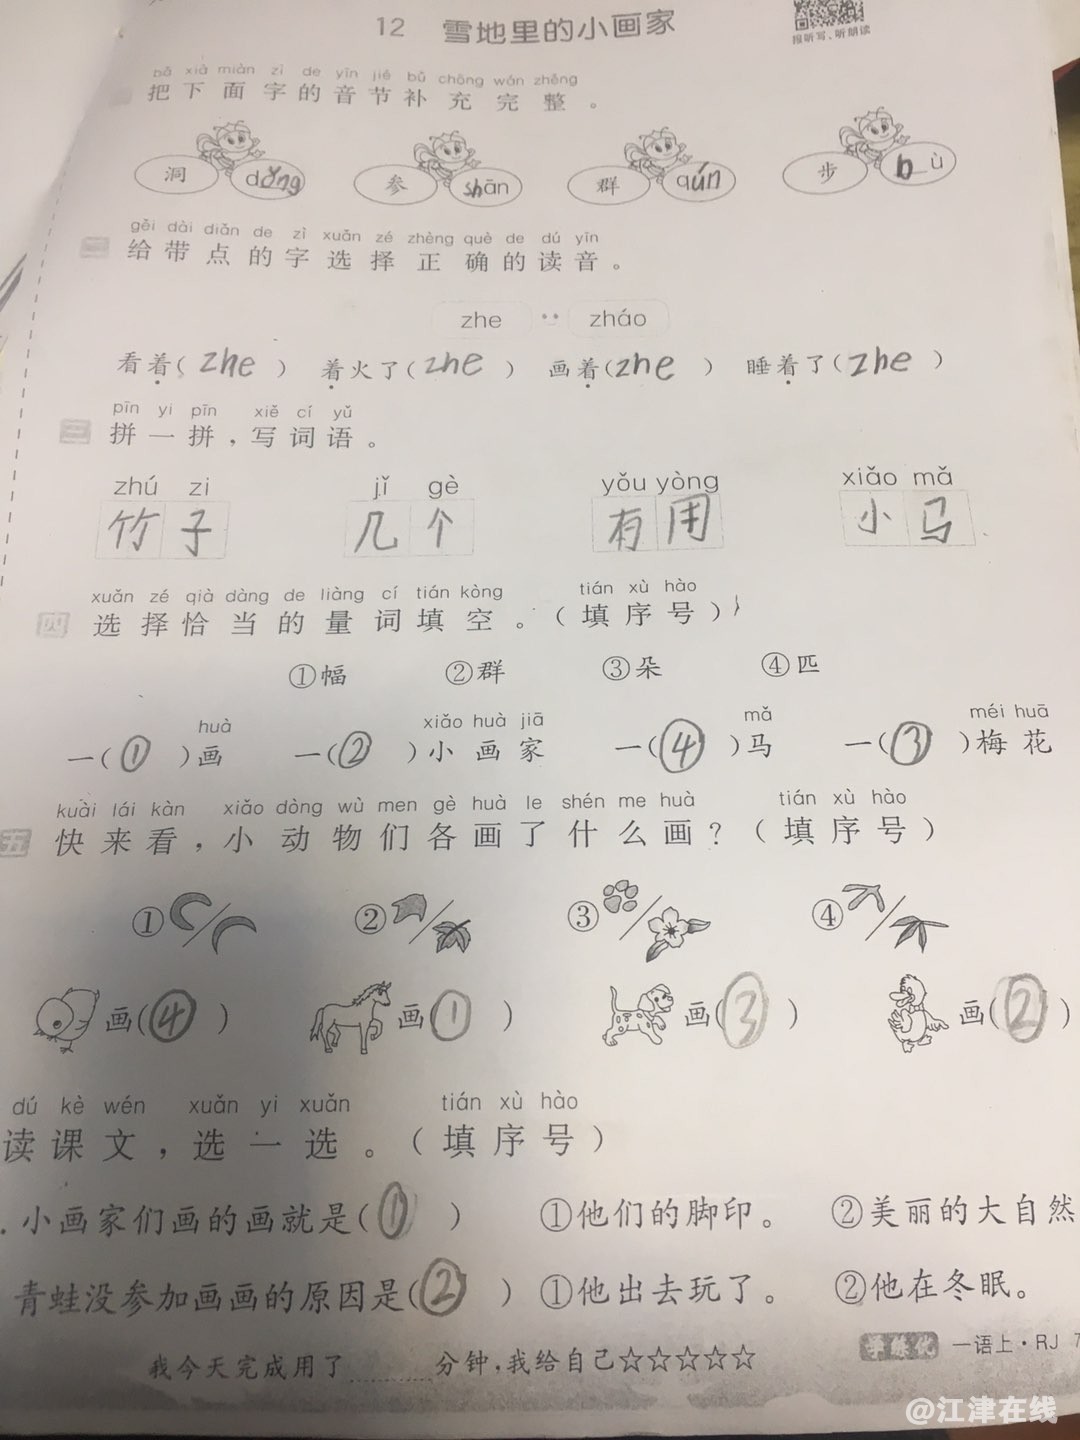 12 雪地里的小画家
报听写、听朗读
bǎ xià miàn zì de yīn jié bǔ chōng wán zhěng
把下面字的音节补充完整。
洞 dòng 参 shān 群 qún 步 bù
gěi dài diǎn de zì xuǎn zé zhèng què de dú yīn
二 给带点的字选择正确的读音。
zhe zháo
看着(zhe) 着火了(zhe) 画着(zhe) 睡着了(zhe)
pīn yi pīn xiě cí yǔ
三 拼一拼,写词语。
zhú zi jǐ gè yǒu yòng xiǎo mǎ
竹子 几个 有用 小马
xuǎn zé qià dàng de liàng cí tián kòng tián xù hào
四 选择恰当的量词填空。(填序号)
①幅 ②群 ③朵 ④匹
huà xiǎo huà jiā mǎ méi huā
一(①)画 一(②)小画家 一(④)马 一(③)梅花
kuài lái kàn xiǎo dòng wù men gè huà le shén me huà tián xù hào
五 快来看,小动物们各画了什么画?(填序号)
① ② ③ ④
画(④) 画(①) 画(③) 画(②)
dú kè wén xuǎn yi xuǎn tián xù hào
读课文,选一选。(填序号)
.小画家们画的画就是(①) ①他们的脚印。 ②美丽的大自然
青蛙没参加画画的原因是(②) ①他出去玩了。 ②他在冬眠。
我今天完成用了 分钟,我给自己☆☆☆☆☆
学练优 一语上·RJ 7
@江津在线